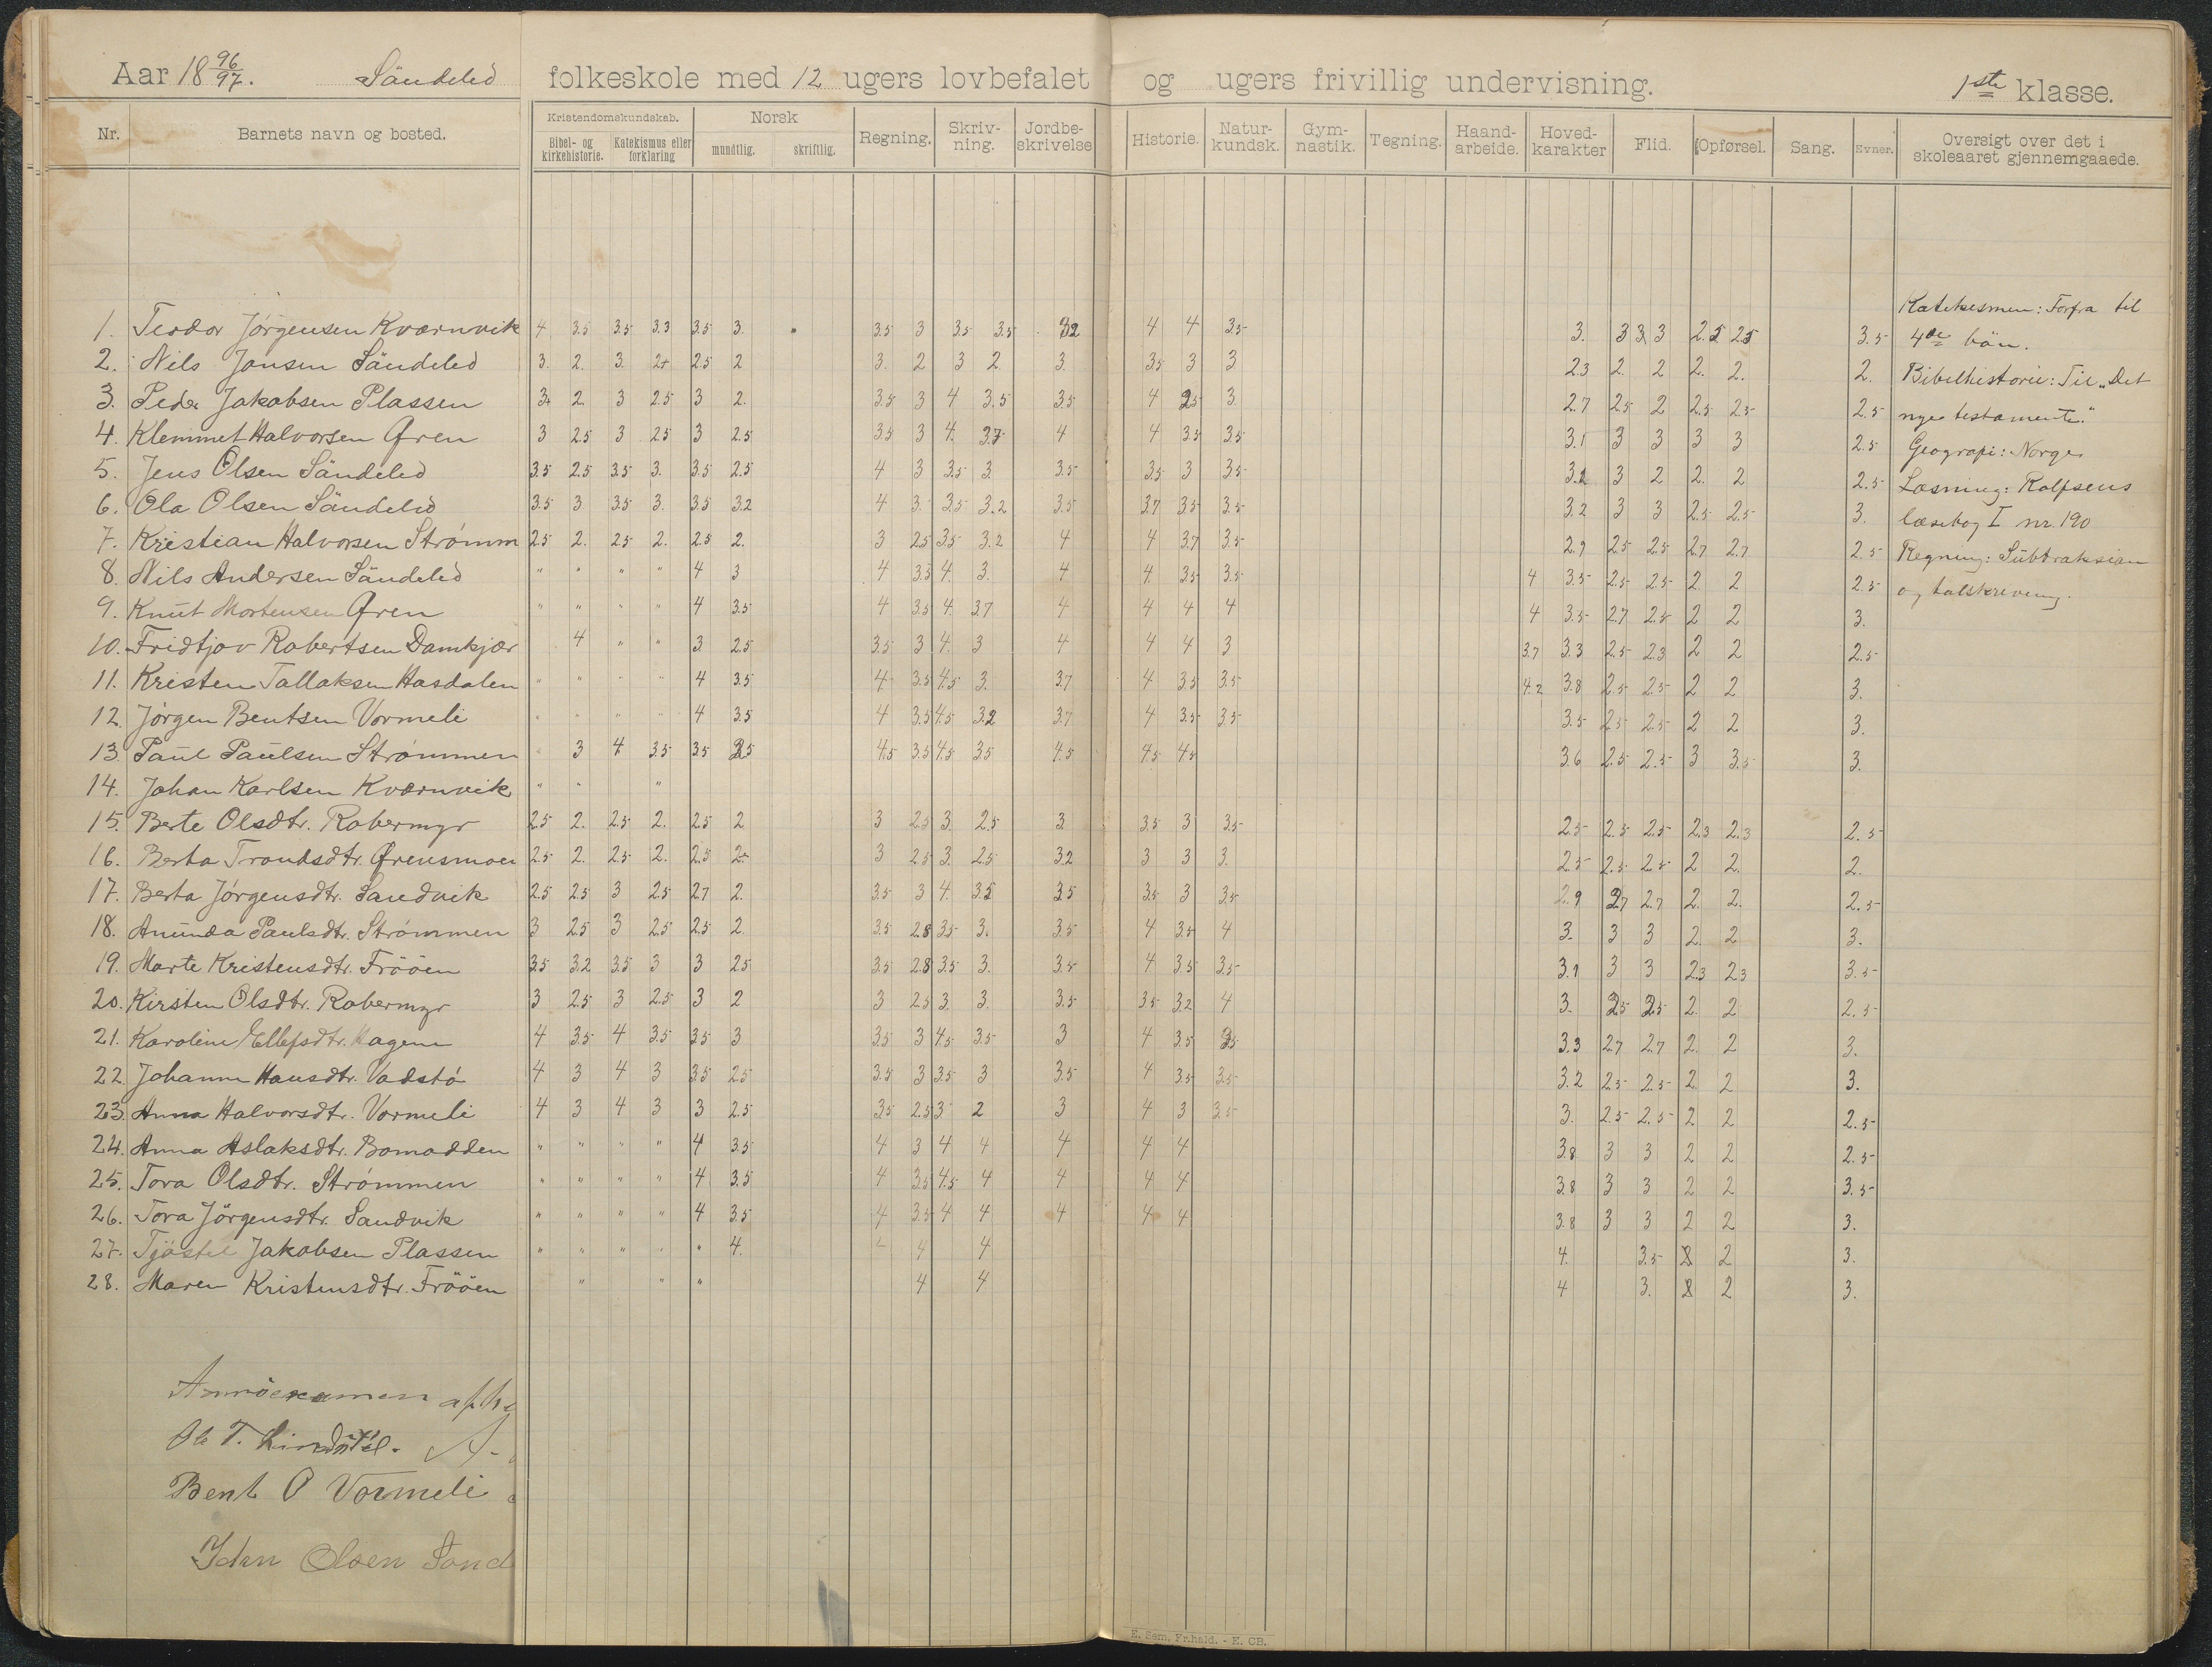 Aar 18 96/97. Sändeled folkeskole med 12 ugers lovbefalet og ugers frivillig undervisning. 1ste klasse.
Nr. Barnets navn og bosted. Kristendomskundskab. Bibel- og kirkehistorie. Katekismus eller forklaring Norsk mundtlig. skriftlig. Regning. Skrivning. Jordbeskrivelse Historie. Naturkundsk. Gymnastik. Tegning. Haandarbeide. Hovedkarakter Flid. Opførsel. Sang. Evner. Oversigt over det i skoleaaret gjennemgaaede.
1. Teodor Jörgensen Kværnvik 4 3.5 3.5 3.3 3.5 3. 3.5 3 3.5 3.5 4 4 3.5 3. 3 3 3 3.5
2. Nils Jansen Sändeled 3. 2. 3. 2+ 2.5 2 3. 2 3 2 3. 3.5 3 3 2.3 2. 2 2. 2. 2.
3. Peder Jakobsen Plassen 2. 3 2.5 3 2. 3.5 3 4 3.5 3.5 4 3. 2.7 2.5 2 2.5 2.5 2.5
4. Klemmet Halvorsen Øren 3 2.5 3 2.5 3 2.5 3.5 3 4. 3.7 4 4 3.5 3.5 3.1 3 3 3 3 2.5
5. Jens Olsen Sändeled 3.5 2.5 3.5 3. 3.5 2.5 4 3 3.5 3. 3.5 3.5 3 3.5 3 2 2. 2 2.5
6. Ola Olsen Sändeled 3.5 3 3.5 3. 3.5 3.2 4 3. 3.5 3.2 3.5 3.7 3.5 3.5 3.2 3 3 2.5 2.5 3.
7. Kristian Halvorsen Strömm 2.5 2. 2.5 2. 2.5 2. 3 2.5 3.5 3.2 4 4 3.7 3.5 2.9 2.5 2.5 2.7 2.7 2.5
8. Nils Andersen Sändeled " " " " 4 3 4 3.3 4. 3. 4 4. 3.5 3.5 4 3.5 2.5 2.5 2 2 2.5
9. Knut Mortensen Øren " " " " 4 3.5 4 3.5 4. 3.7 4 4 4 4 4 3.5 2.7 2.5 2 2 3.
10. Fridtjov Robertsen Damkjær 4 " " 3 2.5 3.5 3 4. 3 4 4 4 3 3.7 3.3 2.5 2.3 2 2 2.5
11. Kristen Tallaksen Hasdalen " " " " 4 3.5 4 3.5 4.5 3. 3.7 4 3.5 3.5 4.2 3.8 2.5 2.5 2 2 3.
12. Jörgen Bentsen Vormeli " " " " 4 3.5 4 3.5 4.5 3.2 3.7 4 3.5 3.5 3.5 2.5 2.5 2 2 3.
13. Paul Paulsen Strömmen 3 4 3.5 3.5 4.5 3.5 4.5 3.5 4.5 4.5 4.5 3.6 2.5 2.5 3 3.5 3.
14. Johan Karlsen Kværnvik " " "
15. Berte Olsdtr. Robermyr 2.5 2. 2.5 2. 2.5 2 3 2.5 3. 2.5 3 3.5 3 3.5 2.5 2.5 2.5 2.3 2.3 2.5
16. Berta Trondsdtr. Ørensmoen 2.5 2. 2.5 2. 2.5 2+ 3 2.5 3. 2.5 3.2 3 3 3. 2.5 2.5 2.5 2 2. 2.
17. Berta Jörgensdtr. Sandvik 2.5 2.5 3 2.5 2.7 2. 3.5 3 4. 3.5 3.5 3.5 3 3.5 2.9 2.7 2.7 2. 2. 2.5
18. Anunda Paulsdtr. Strömmen 3 2.5 3 2.5 2.5 2. 3.5 2.8 3.5 3. 3.5 4 3.5 4 3. 3 3 2. 2 3.
19. Marte Kristensdtr. Frööen 3.5 3.2 3.5 3 3 2.5 3.5 2.8 3.5 3. 3.5 4 3.5 3.5 3.1 3 3 2.3 2.3 3.5
20. Kirsten Olsdtr. Robermyr 3 2.5 3 2.5 3 2 3 2.5 3. 3. 3.5 3.5 3.2 4 3. 2.5 2.5 2. 2 2.5
21. Karoline Ellefsdtr. Hagene 4 3.5 4 3.5 3.5 3 3.5 3 4.5 3.5 3 4 3.5 3.5 3.3 2.7 2.7 2. 2 3.
22. Johanne Hansdtr. Vadstö 4 3 4 3 3.5 2.5 3.5 3 3.5 3 3.5 4 3.5 3.5 3.2 2.5 2.5 2. 2 3.
23. Anna Halvorsdtr. Vormeli 4 3 4 3 3 2.5 3.5 2.5 3 2 3 4 3 3.5 3. 2.5 2.5 2 2 2.5
24. Anna Aslaksdtr. Bomadden " " " " 4 3.5 4 3 4 4 4 4 4 3.8 3 3 2 2 2.5
25. Tora Olsdtr. Strömmen " " " " 4 3.5 4 3.5 4.5 4 4 4 4 3.8 3 3 2 2 3.5
26. Tora Jörgensdtr. Sandvik " " " " 4 3.5 4 3.5 4 4 4 4 4 3.8 3 3 2 2 3.
27. Tjöstel Jakobsen Plassen " " " " " 4. 4 4 4. 3.5 2 3.
28. Maren Kristensdtr. Frööen " " " 4 4 4 3. 2 3.
Katekesmen: Forfra til
4de bön.
Bibelhistorie: Til "Det
nye testamente."
Geografi: Norge
Læsning: Rolfsens
læsebog I nr. 190
Regning: Subtraksion
og talskrivning.
Bent O Vormeli
John Olsen Sönd
E. Sem, Fr.hald. - E. CB.